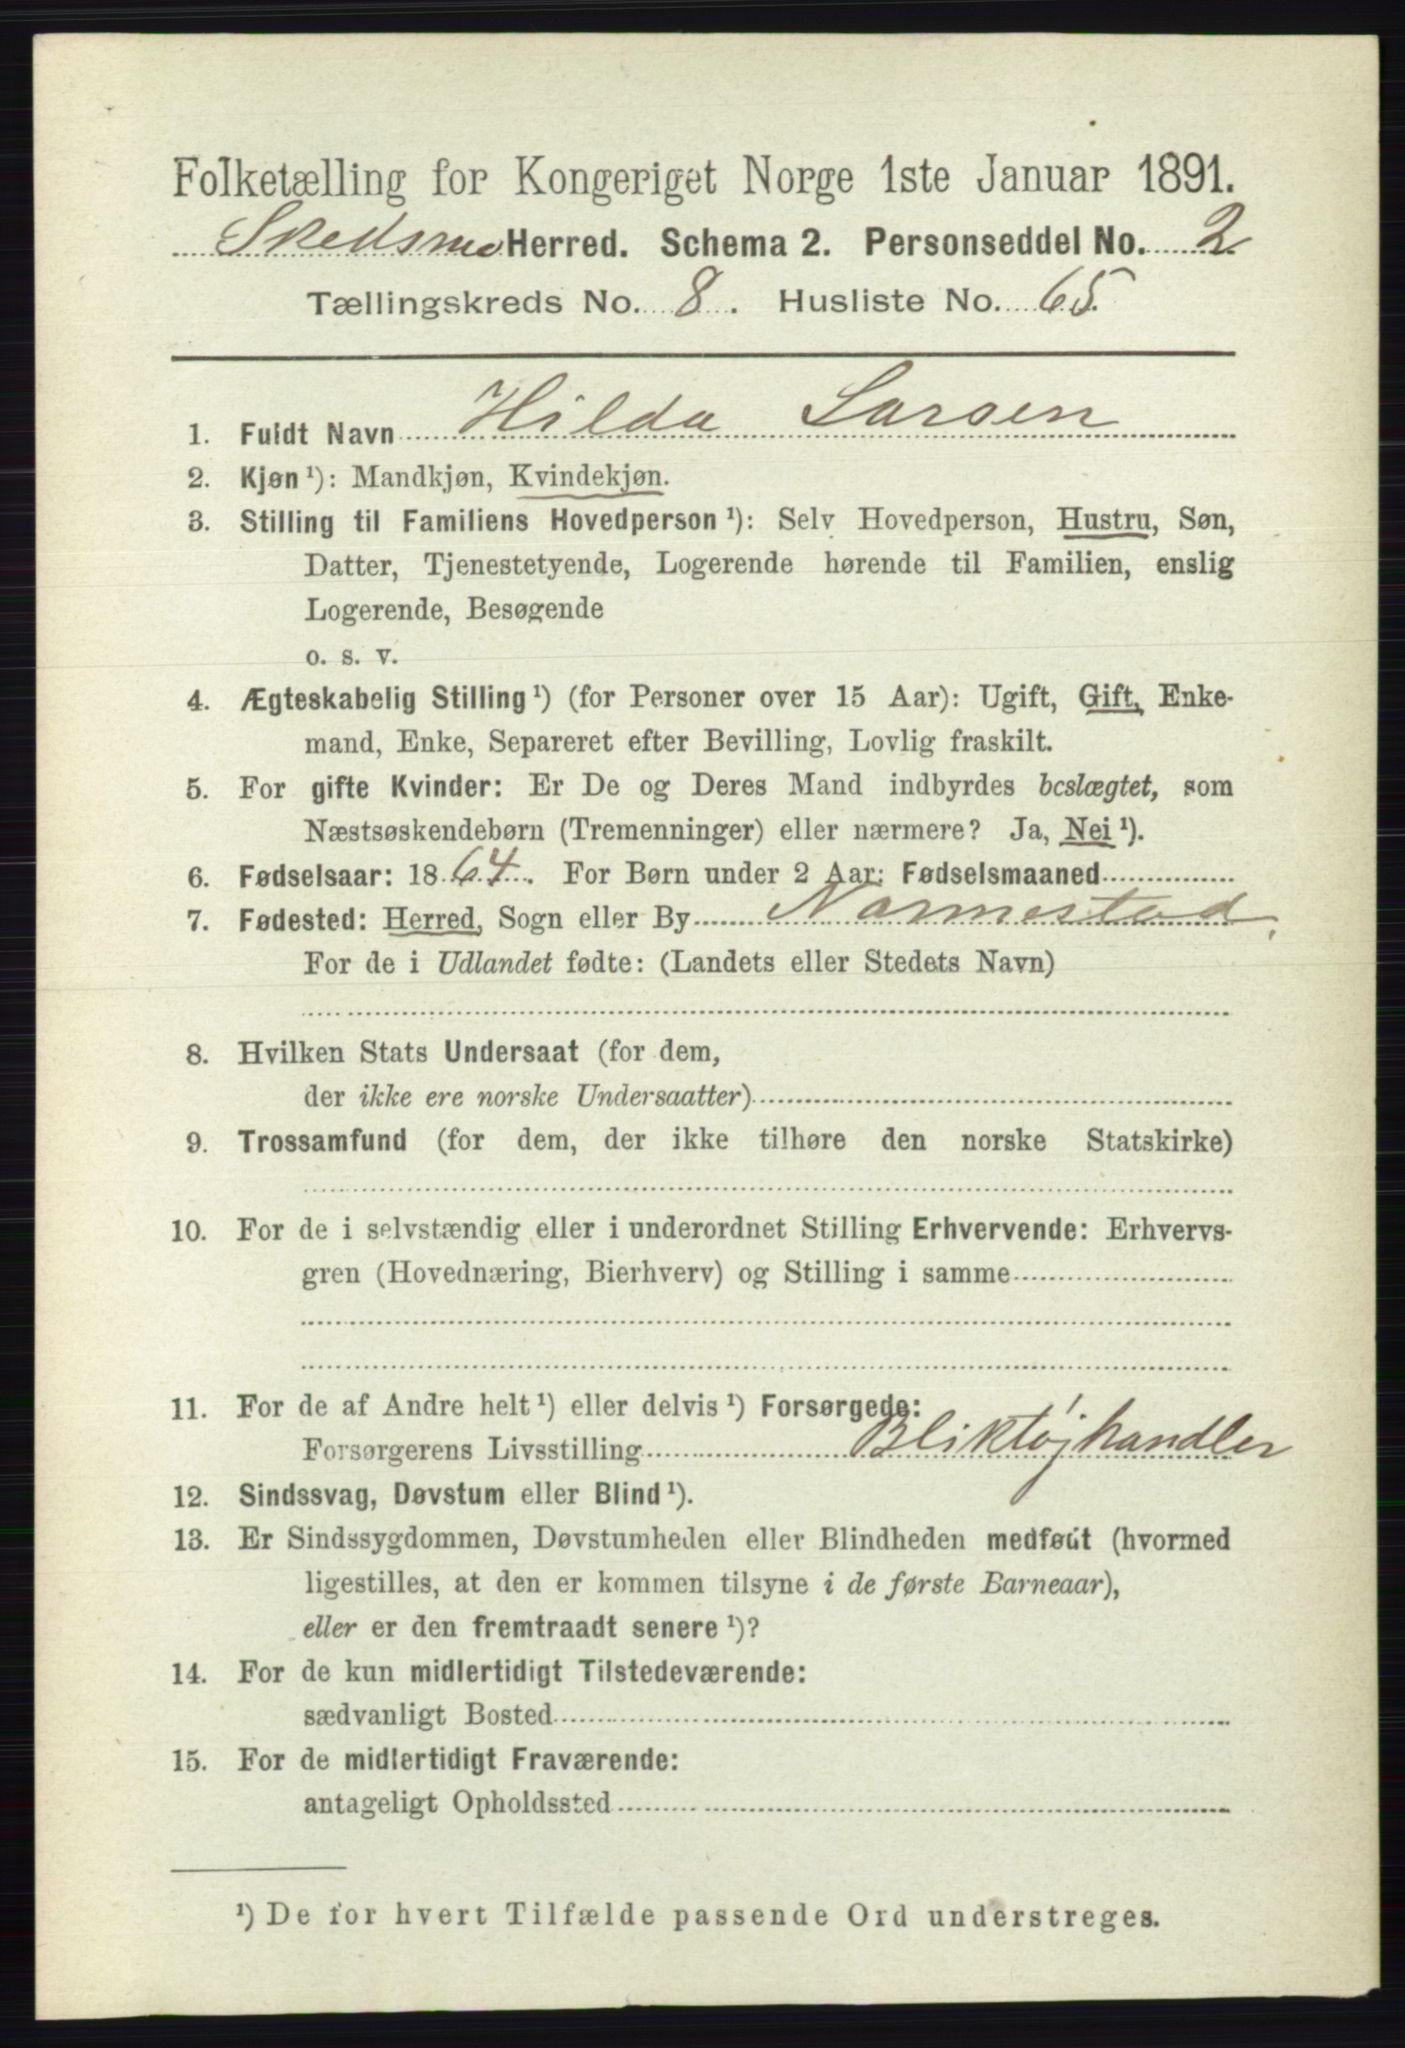 Folketælling for Kongeriget Norge 1ste Januar 1891.
Skedsmo Herred. Schema 2. Personseddel No. 2
Tællingskreds No. 8. Husliste No. 65.
1. Fuldt Navn Hilda Larsen
2. Kjøn ¹): Mandkjøn, Kvindekjøn.
3. Stilling til Familiens Hovedperson ¹): Selv Hovedperson, Hustru, Søn,
Datter, Tjenestetyende, Logerende hørende til Familien, enslig
Logerende, Besøgende
o. s. v.
4. Ægteskabelig Stilling ¹) (for Personer over 15 Aar): Ugift, Gift, Enke-
mand, Enke, Separeret efter Bevilling, Lovlig fraskilt.
5. For gifte Kvinder: Er De og Deres Mand indbyrdes beslægtet, som
Næstsøskendebørn (Tremenninger) eller nærmere? Ja, Nei ¹).
6. Fødselsaar: 1864. For Børn under 2 Aar: Fødselsmaaned
7. Fødested: Herred, Sogn eller By Nannestad.
For de i Udlandet fødte: (Landets eller Stedets Navn)
8. Hvilken Stats Undersaat (for dem,
der ikke ere norske Undersaatter)
9. Trossamfund (for dem, der ikke tilhøre den norske Statskirke)
10. For de i selvstændig eller i underordnet Stilling Erhvervende: Erhvervs-
gren (Hovednæring, Bierhverv) og Stilling i samme
11. For de af Andre helt ¹) eller delvis ¹) Forsørgede:
Forsørgerens Livsstilling Bliktøjhandler
12. Sindssvag, Døvstum eller Blind ¹).
13. Er Sindssygdommen, Døvstumheden eller Blindheden medfødt (hvormed
ligestilles, at den er kommen tilsyne i de første Barneaar),
eller er den fremtraadt senere ¹)?
14. For de kun midlertidigt Tilstedeværende:
sædvanligt Bosted
15. For de midlertidigt Fraværende:
antageligt Opholdssted
¹) De for hvert Tilfælde passende Ord understreges.